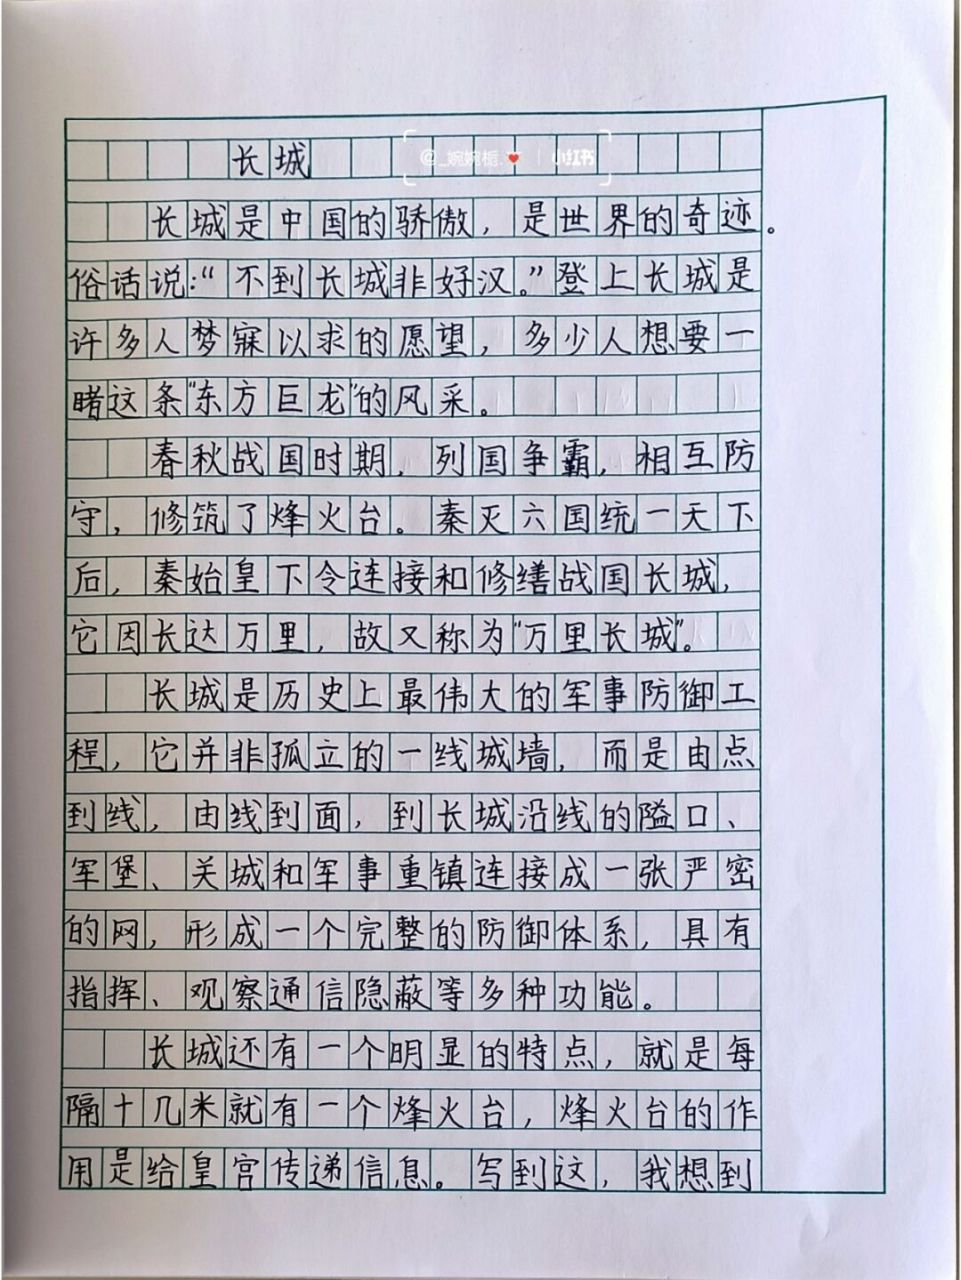 长城
@_婉婉栀.❤ | 小红书
长城是中国的骄傲，是世界的奇迹。
俗话说:“不到长城非好汉。”登上长城是
许多人梦寐以求的愿望，多少人想要一
睹这条“东方巨龙”的风采。
春秋战国时期，列国争霸，相互防
守，修筑了烽火台。秦灭六国统一天下
后，秦始皇下令连接和修缮战国长城，
它因长达万里，故又称为“万里长城”。
长城是历史上最伟大的军事防御工
程，它并非孤立的一线城墙，而是由点
到线，由线到面，到长城沿线的隘口、
军堡、关城和军事重镇连接成一张严密
的网，形成一个完整的防御体系，具有
指挥、观察通信隐蔽等多种功能。
长城还有一个明显的特点，就是每
隔十几米就有一个烽火台，烽火台的作
用是给皇宫传递信息。写到这，我想到